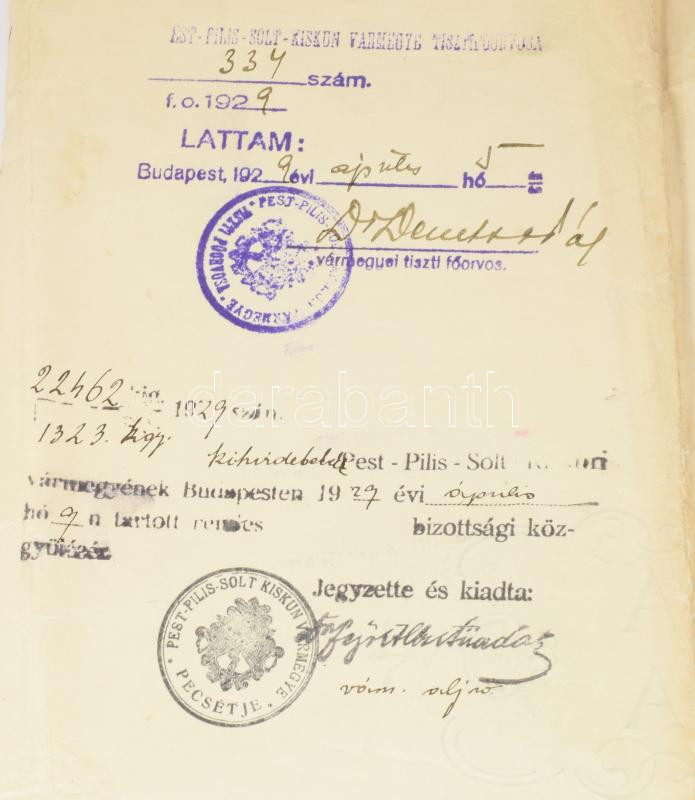 EST-PILIS-SOLT-KISKUN VÁRMEGYE TISZTIFŐORVOSA
334 szám.
f.o. 1929
LATTAM:
Budapest, 1929 évi április hó 5
PEST-PILIS-SOLT-KISKUN VÁRMEGYE TISZTI FŐORVOSA
Dr
vármegyei tiszti főorvos.
22462 1929 szám.
1323. kigy.
darabanth
Pest - Pilis - Solt -
vármegyének Budapesten 1929 évi április
hó 9 n tartott rendes bizottsági köz-
gyűlésén.
Jegyzette és kiadta:
PEST-PILIS-SOLT KISKUN VÁRMEGYE PECSÉTJE
várm. aljző.